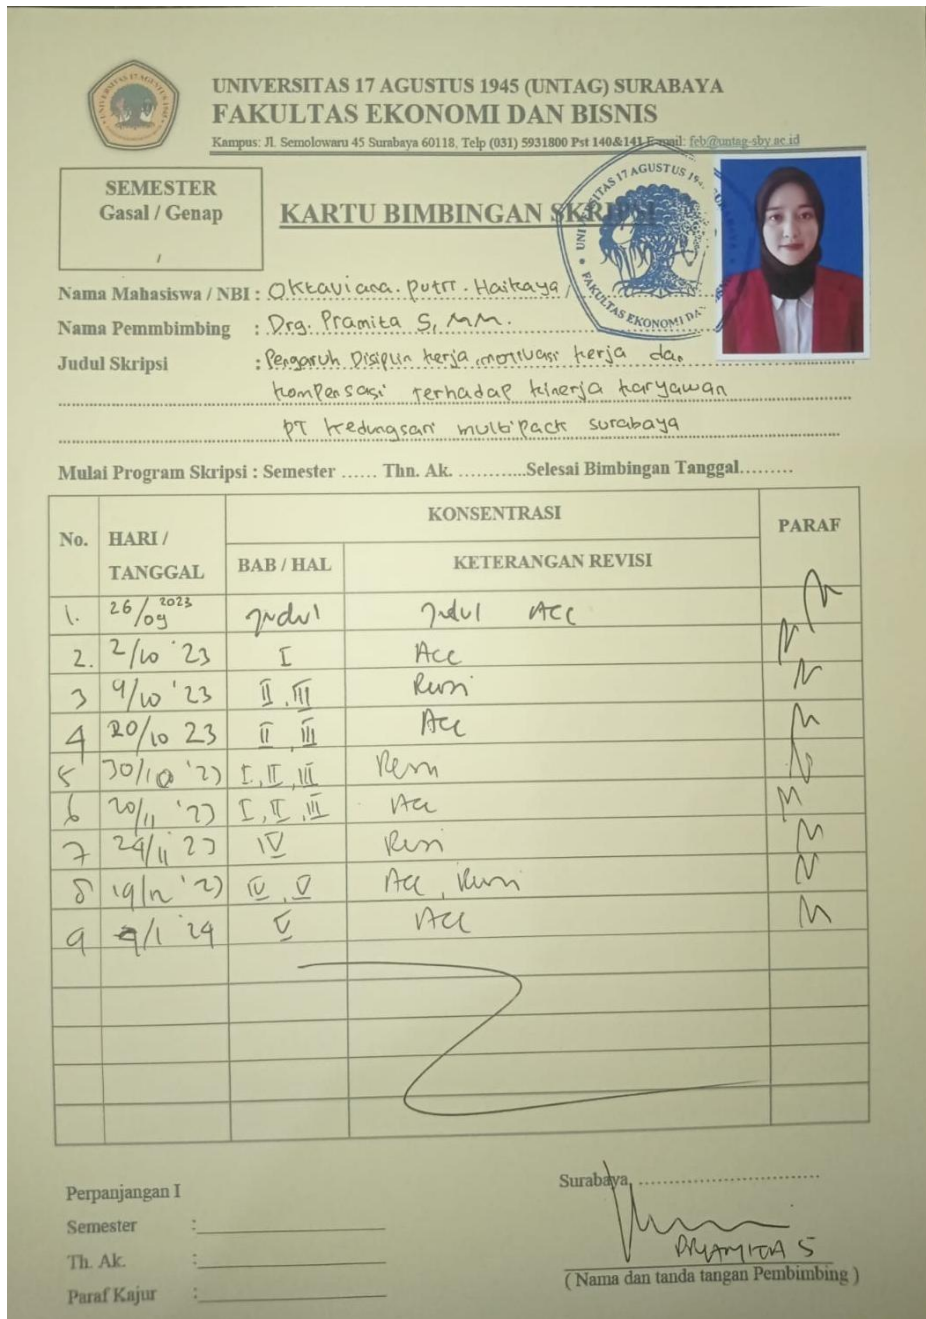 UNIVERSITAS 17 AGUSTUS 1945 (UNTAG) SURABAYA
FAKULTAS EKONOMI DAN BISNIS
Kampus: Jl. Semolowaru 45 Surabaya 60118, Telp (031) 5931800 Pst 140&141 E-mail: feb@untag-sby.ac.id
SEMESTER
Gasal / Genap
/
KARTU BIMBINGAN SKRIPSI
UNIVERSITAS 17 AGUSTUS 1945
FAKULTAS EKONOMI DAN
Nama Mahasiswa / NBI : Oktaviana. Putri. Haikaya /
Nama Pemmbimbing : Drg. Pramita S, MM.
Judul Skripsi : Pengaruh Disiplin kerja, motivasi kerja dan
kompensasi terhadap kinerja karyawan
PT kedungsari multipack surabaya
Mulai Program Skripsi : Semester ...... Thn. Ak. ............Selesai Bimbingan Tanggal.........
No. HARI / TANGGAL KONSENTRASI PARAF
BAB / HAL KETERANGAN REVISI
1. 26/09 2023 Judul Judul ACC
2. 2/10 '23 I Acc
3 9/10 '23 II, III Revisi
4 20/10 23 II III Acc
5 30/10 '23 I, II, III Revisi
6 20/11 '23 I, II, III Acc
7 24/11 23 IV Revisi
8 19/12 '23 IV, V Acc, Revisi
9 9/1 '24 V Acc
Perpanjangan I
Semester :
Th. Ak. :
Paraf Kajur :
Surabaya, ..............................
PRAMITA S
( Nama dan tanda tangan Pembimbing )